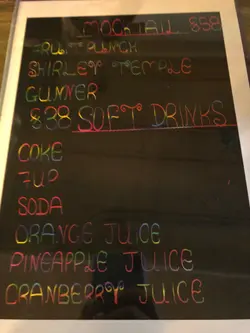 MOCKTAIL $58
FRUIT PUNCH
SHIRLEY TEMPLE
GUNNER
$38 SOFT DRINKS
COKE
7UP
SODA
ORANGE JUICE
PINEAPPLE JUICE
CRANBERRY JUICE